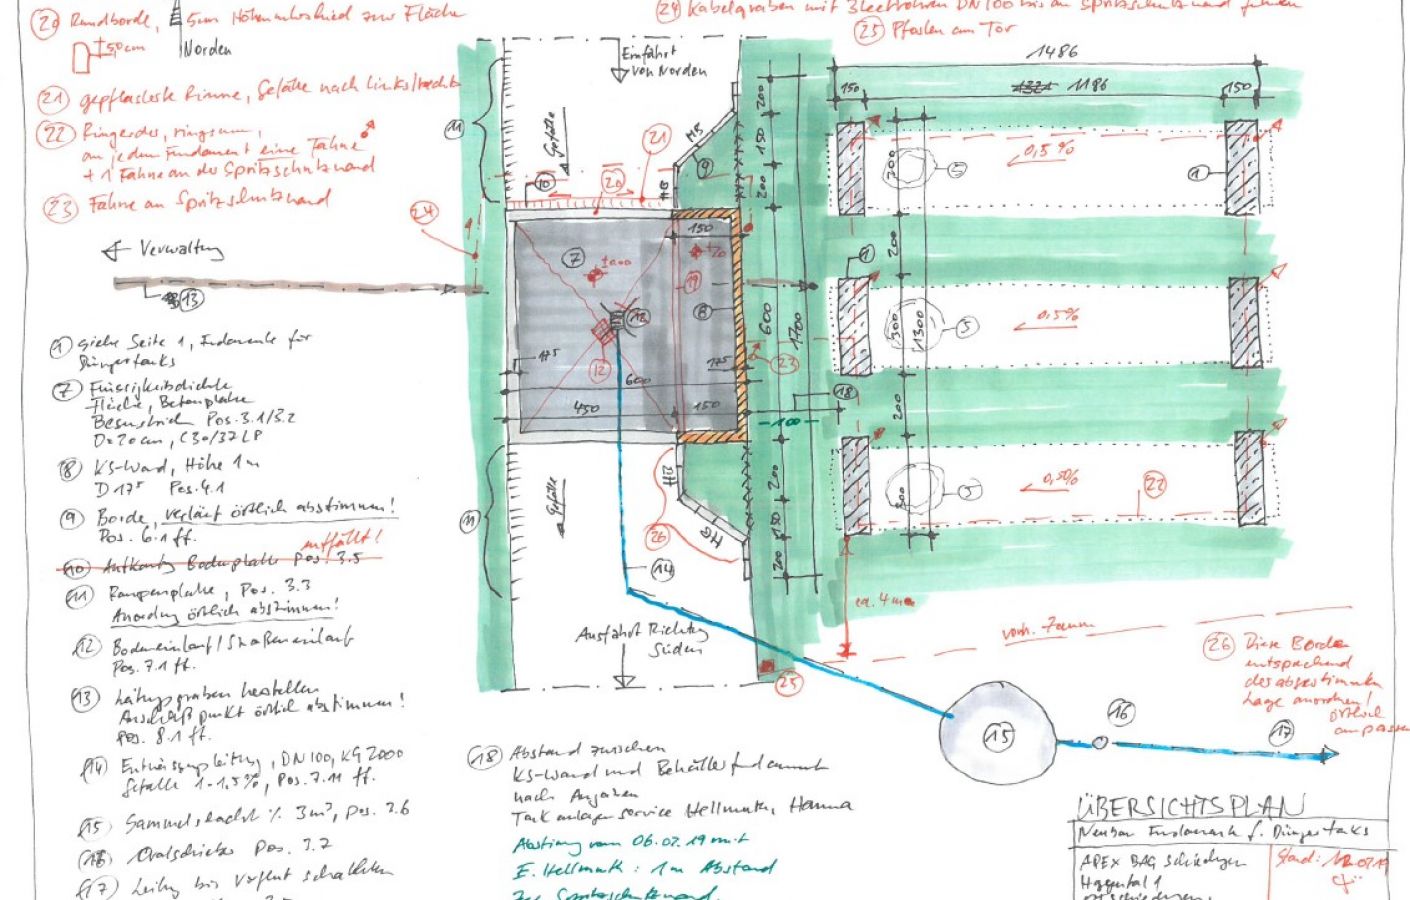 20 Rundborde, 5cm Höhenunterschied zur Fläche
±50cm
Norden
21 gepflasterte Rinne, Gefälle nach links/rechts
22 Ringerder, ringsum,
an jedem Fundament eine Fahne
+ 1 Fahne an der Spritzschutzwand
23 Fahne an Spritzschutzwand
24 Kabelgraben mit 3 Leerrohren DN100 bis an Spritzschutzwand führen
25 Pfosten am Tor
Einfahrt
von Norden
← Verwaltung
13
1 siehe Seite 1, Fundamente für
Düngertanks
7 Flüssigkeitsdichte
Fläche, Betonplatte
Besenstrich Pos. 3.1/3.2
D=20cm, C30/37 LP
8 KS-Wand, Höhe 1m
D 17⁵ Pos. 4.1
9 Borde, Verlauf örtlich abstimmen!
Pos. 6.1 ff.
entfällt!
10 Aufkantung Bodenplatte Pos. 3.5
11 Rampenplatte, Pos. 3.3
Anordnung örtlich abstimmen!
12 Bodeneinlauf/Straßeneinlauf
Pos. 7.1 ff.
13 Leitungsgraben herstellen
Anschlußpunkt örtlich abstimmen!
Pos. 8.1 ff.
14 Entwässerungsleitung, DN100, KG2000
Gefälle 1-1,5%, Pos. 7.11 ff.
15 Sammelschacht 3m³, Pos. 7.6
16 Ovalschieber Pos. 7.7
17 Leitung bis
11
Gefälle
10
20
21
9
HB
150
7
±0.00
12
12
19
8
17⁵
17⁵
600
450
150
23
18
100
24
11
Gefälle
HB
HB
26
14
Ausfahrt Richtung
Süden
25
200
150
200
600
1700
200
150
200
1486
150
1186
150
300
200
300
1300
200
300
0,5%
0,5%
0,5%
5
5
5
1
1
22
ca. 4m
vorh. Zaun
15
16
17
26 Diese Borde
entsprechend
der abgestimmten
Lage anordnen!
örtlich
anpassen
18 Abstand zwischen
KS-Wand und Behälterfundament
nach Angaben
Tankanlagenservice Hellmuth, Hanna
Abstimmung vom 06.02.19 mit
E. Hellmuth: 1m Abstand
zur Spritzschutzwand.
ÜBERSICHTSPLAN
Neubau Fundamente f. Düngertanks
APEX BAG Schiedungen
Haggental 1
Stand: